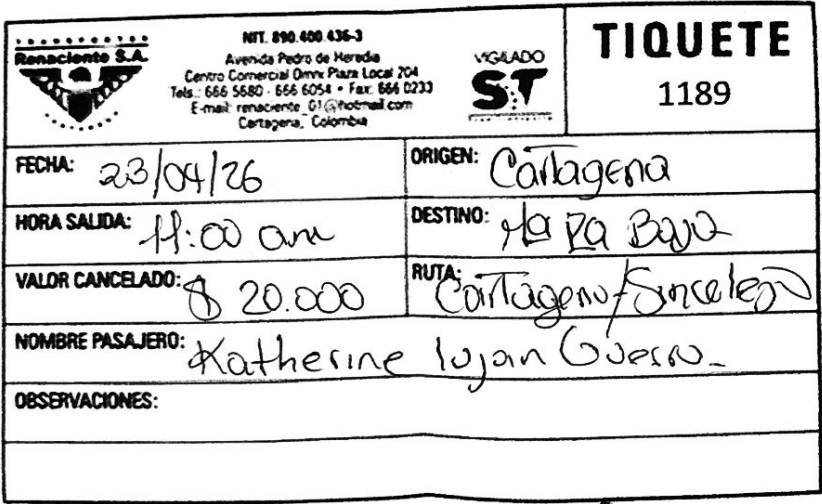 Renaciente S.A.
NIT. 890.400.436-3
Avenida Pedro de Heredia
Centro Comercial Omni Plaza Local 204
Tels.: 666 5680 - 666 6054 • Fax: 666 0233
E-mail: renaciente_01@hotmail.com
Cartagena, Colombia
VIGILADO
ST
TIQUETE
1189
FECHA: 23/04/26
ORIGEN: Cartagena
HORA SALIDA: 11:00 am
DESTINO: Ma Ra Baja
VALOR CANCELADO: $ 20.000
RUTA: Cartagena/Sincelejo
NOMBRE PASAJERO: Katherine lujan Guerra
OBSERVACIONES: